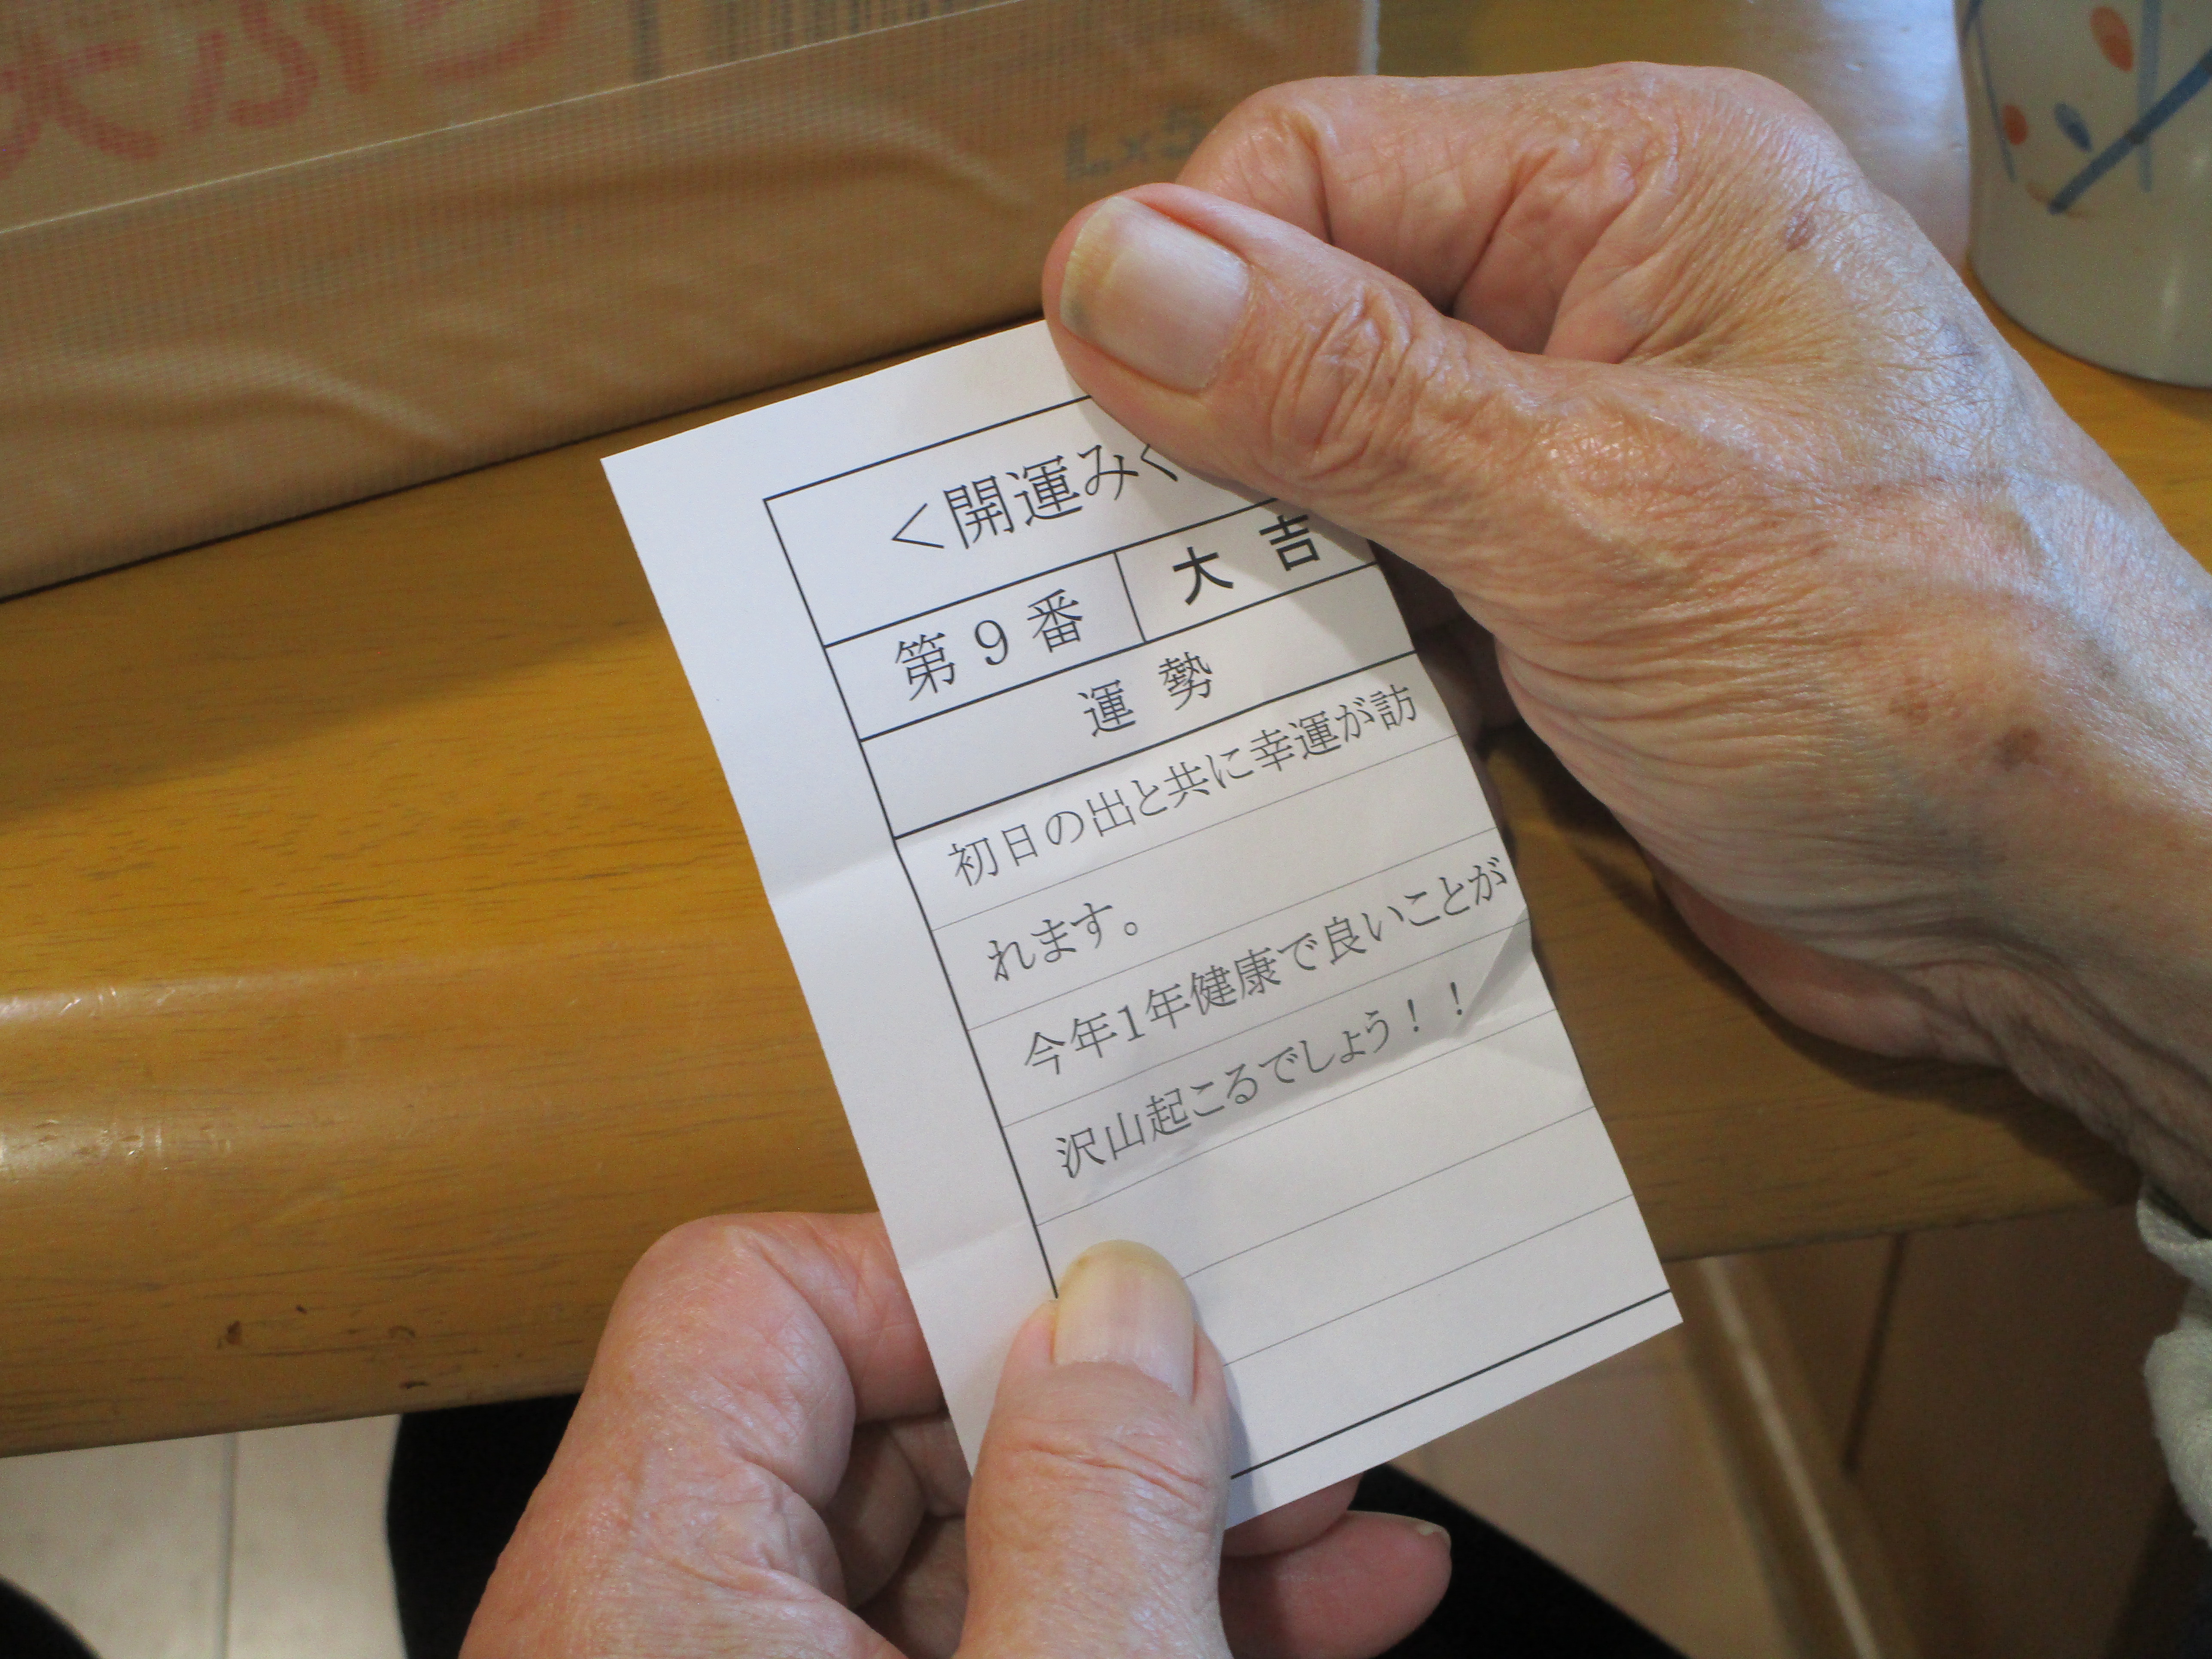 ＜開運みく
第９番
大吉
運勢
初日の出と共に幸運が訪
れます。
今年1年健康で良いことが
沢山起こるでしょう！！